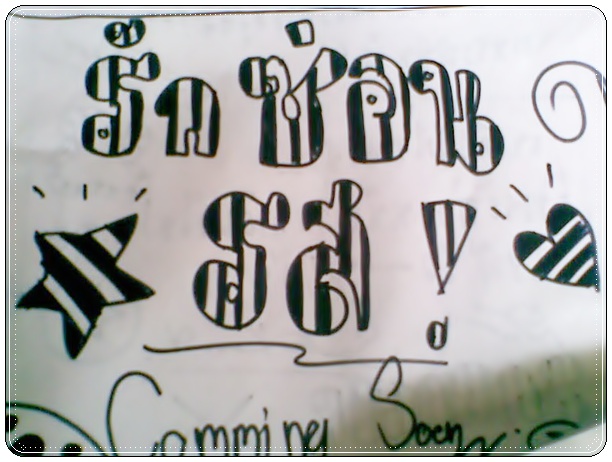 รัก ซ่อน
รส !
Comming Soon